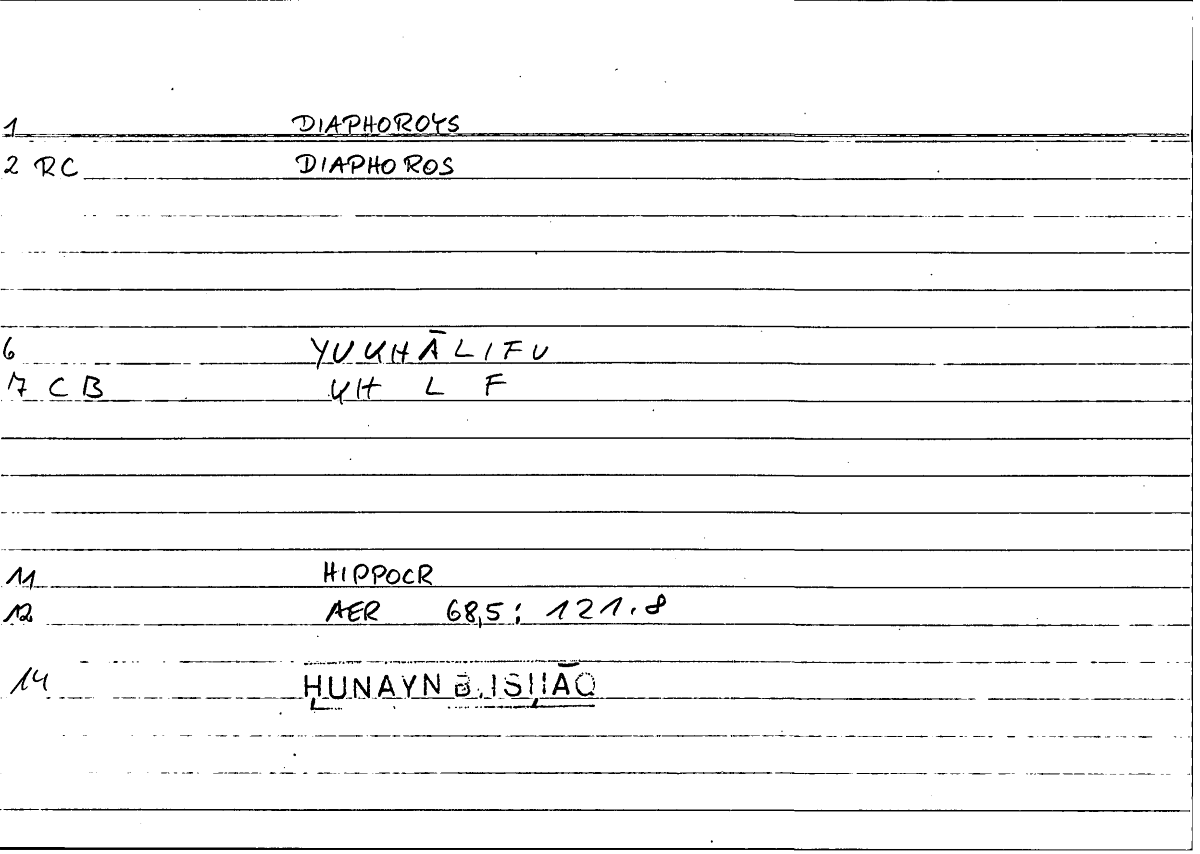 1 DIAPHOROYS
2 RC DIAPHOROS
6 YUKHĀLIFU
7 CB KH L F
11 HIPPOCR
12 AER 68,5; 121.8
14 ḤUNAYN B. ISḤĀQ